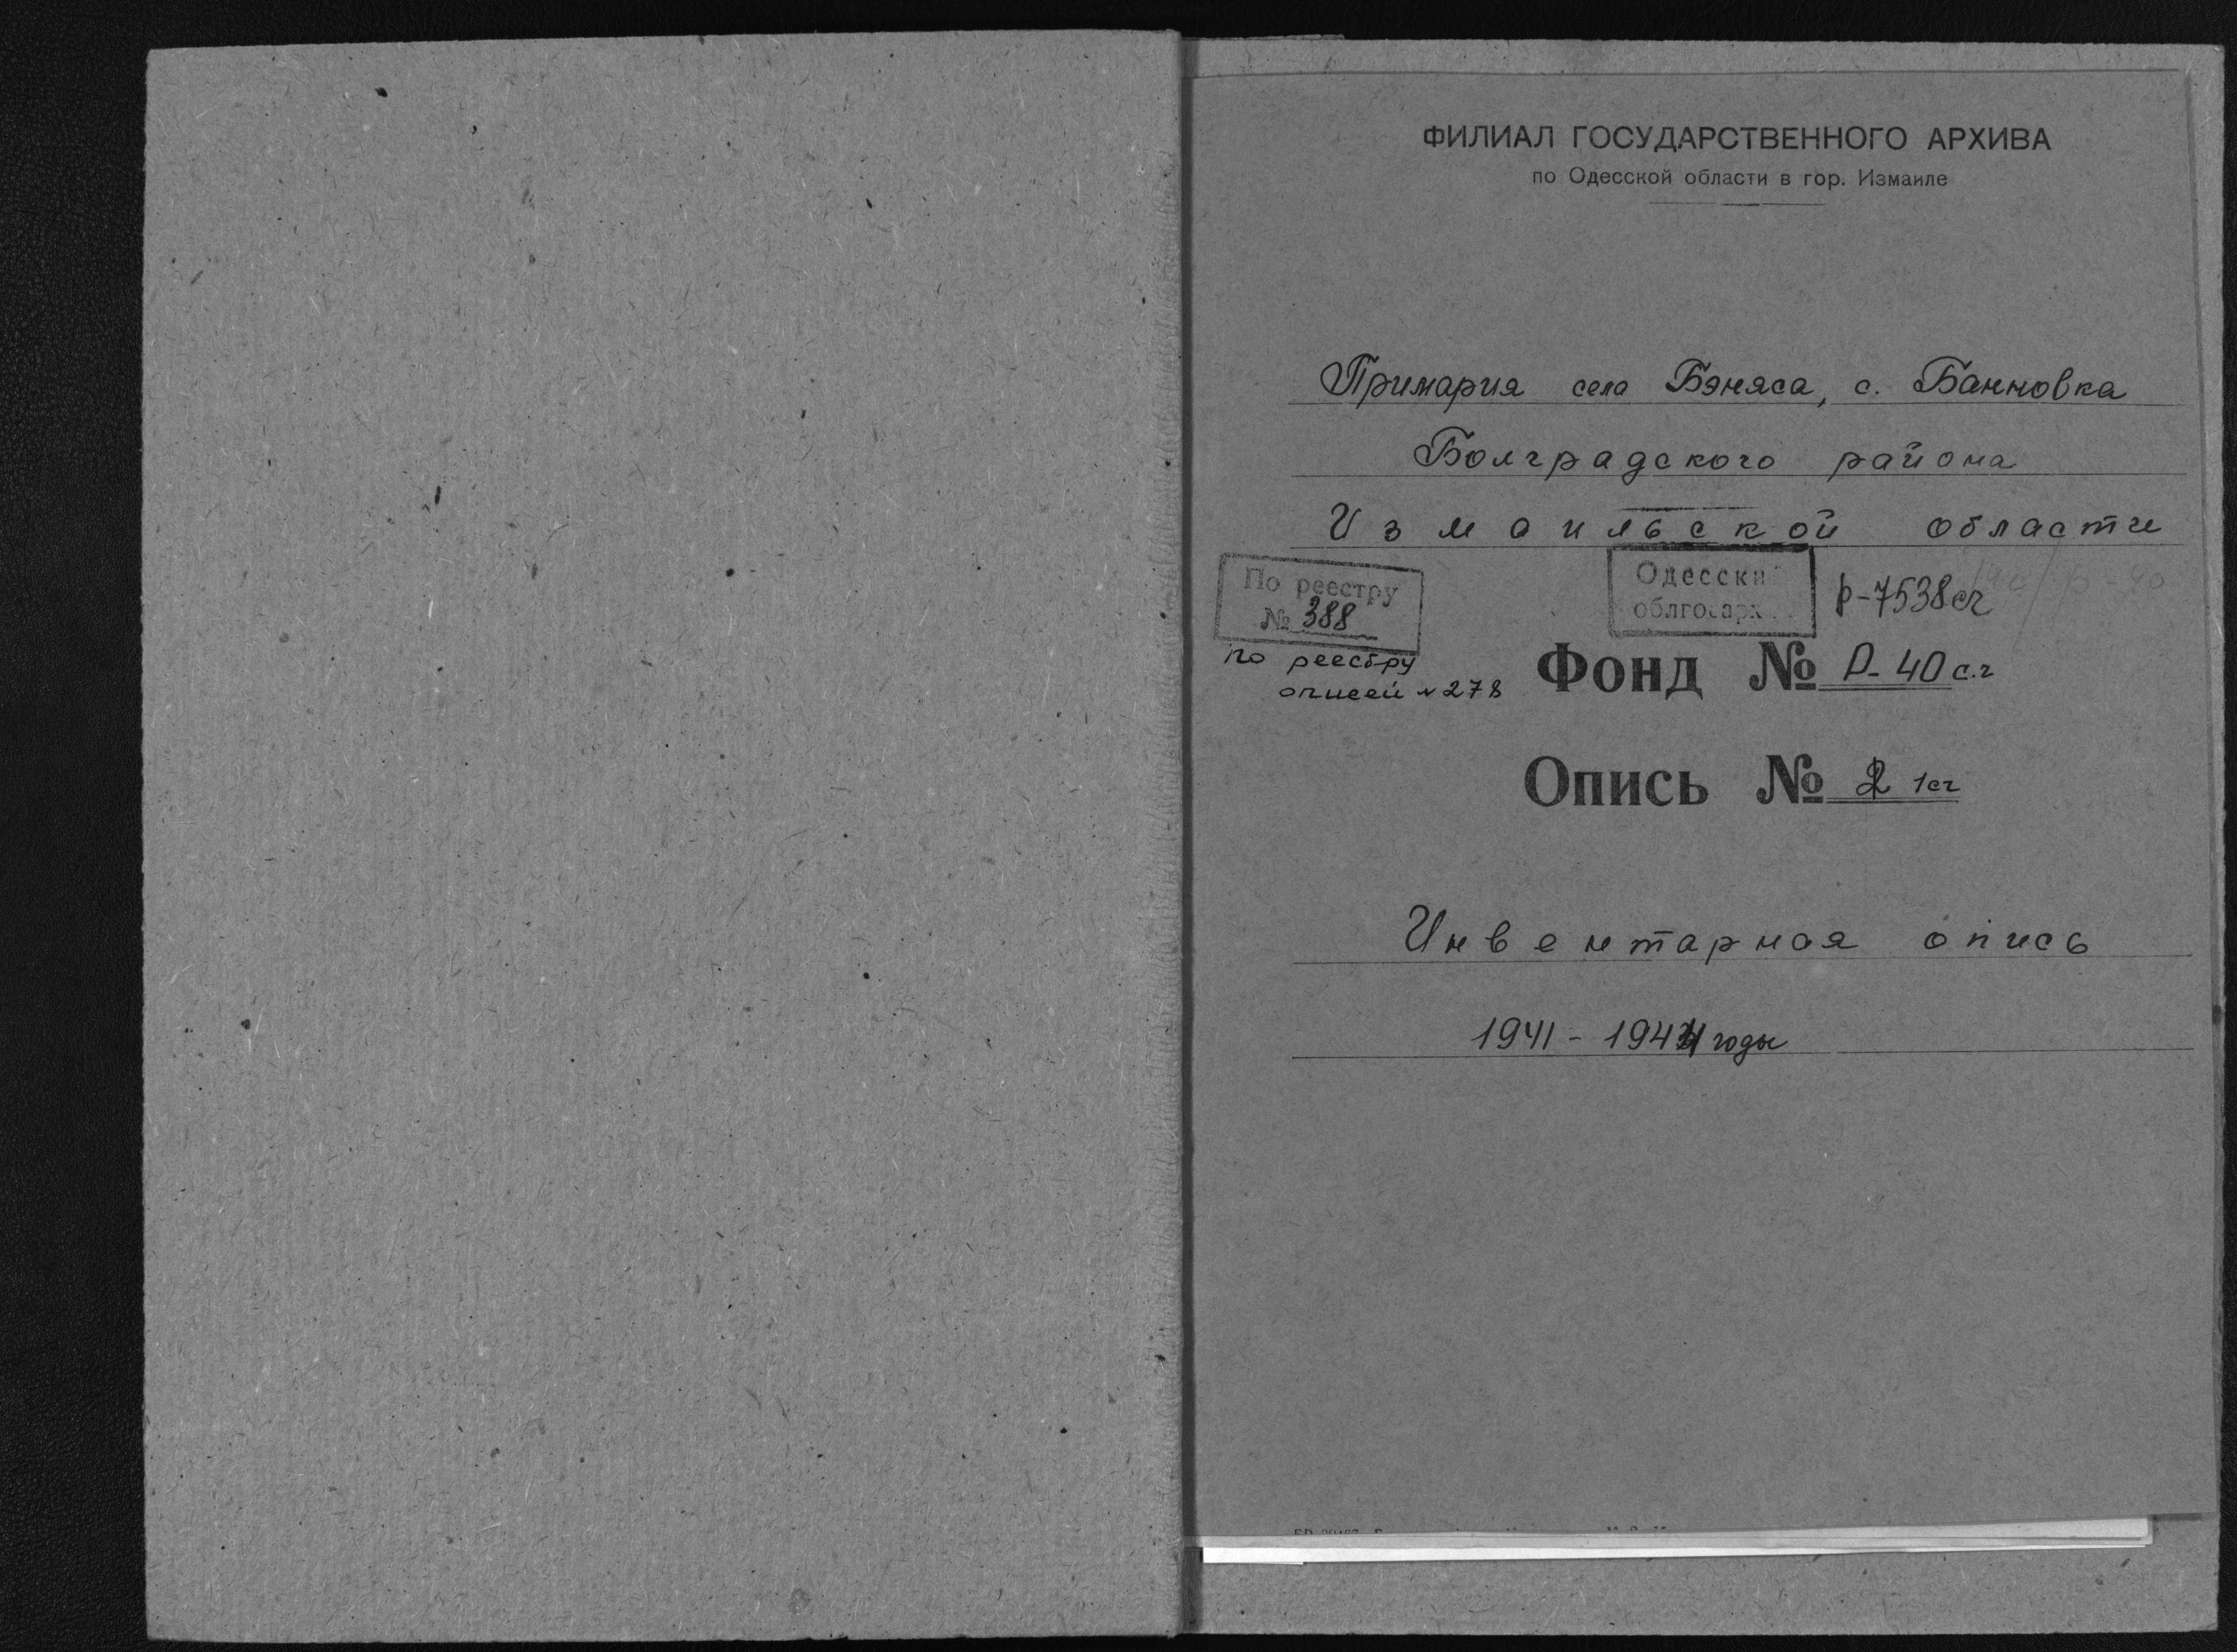 ФИЛИАЛ ГОСУДАРСТВЕННОГО АРХИВА
по Одесской области в гор. Измаиле
Примария села Бэняса, с. Банновка
Болградского района
Измаильской области
По реестру
№ 388
по реестру
описей № 278
Одесски
облгосарх
р-7538сч
Фонд № Р-40 с.ч
Опись № 2 1сч
Инвентарная опись
1941 - 1944 годы